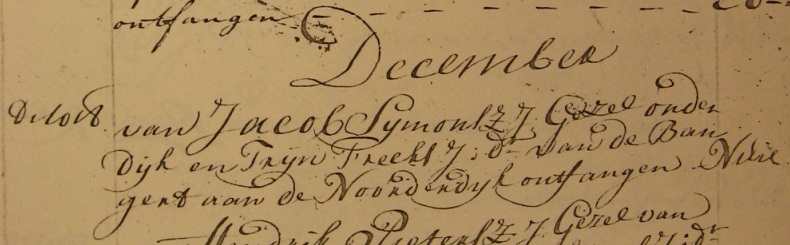 ontfangen
December
van Jacob Symonsz J Gezel onder
Dijk en Tryn Freeks J: dr van de Ban
gert aan de Noorderdyk ontfangen
Hendrik Pietersz J Gezel van